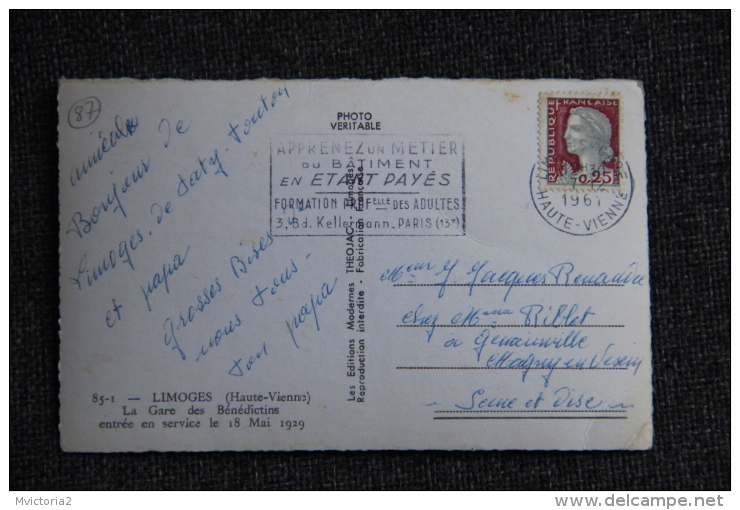 87
amicale
Bonjour de
Limoges. de Taty. tonton
et papa
Grosses Bises
nous tous -
ton papa
85-1 — LIMOGES (Haute-Vienne)
La Gare des Bénédictins
entrée en service le 18 Mai 1929
PHOTO
VERITABLE
Les Editions Modernes THEOJAC, Limoges
Reproduction interdite Fabrication Française
APPRENEZ UN METIER
DU BÂTIMENT
EN ETANT PAYÉS
FORMATION PROFelle DES ADULTES
3, Bd. Kellermann. PARIS (13e)
REPUBLIQUE FRANÇAISE
0,25
1961
HAUTE-VIENNE
Jacques Renaudie
chez Mme Billot
a Genainville
Magny en Vexin
Seine et Oise
Mvictoria2
delcampe.net